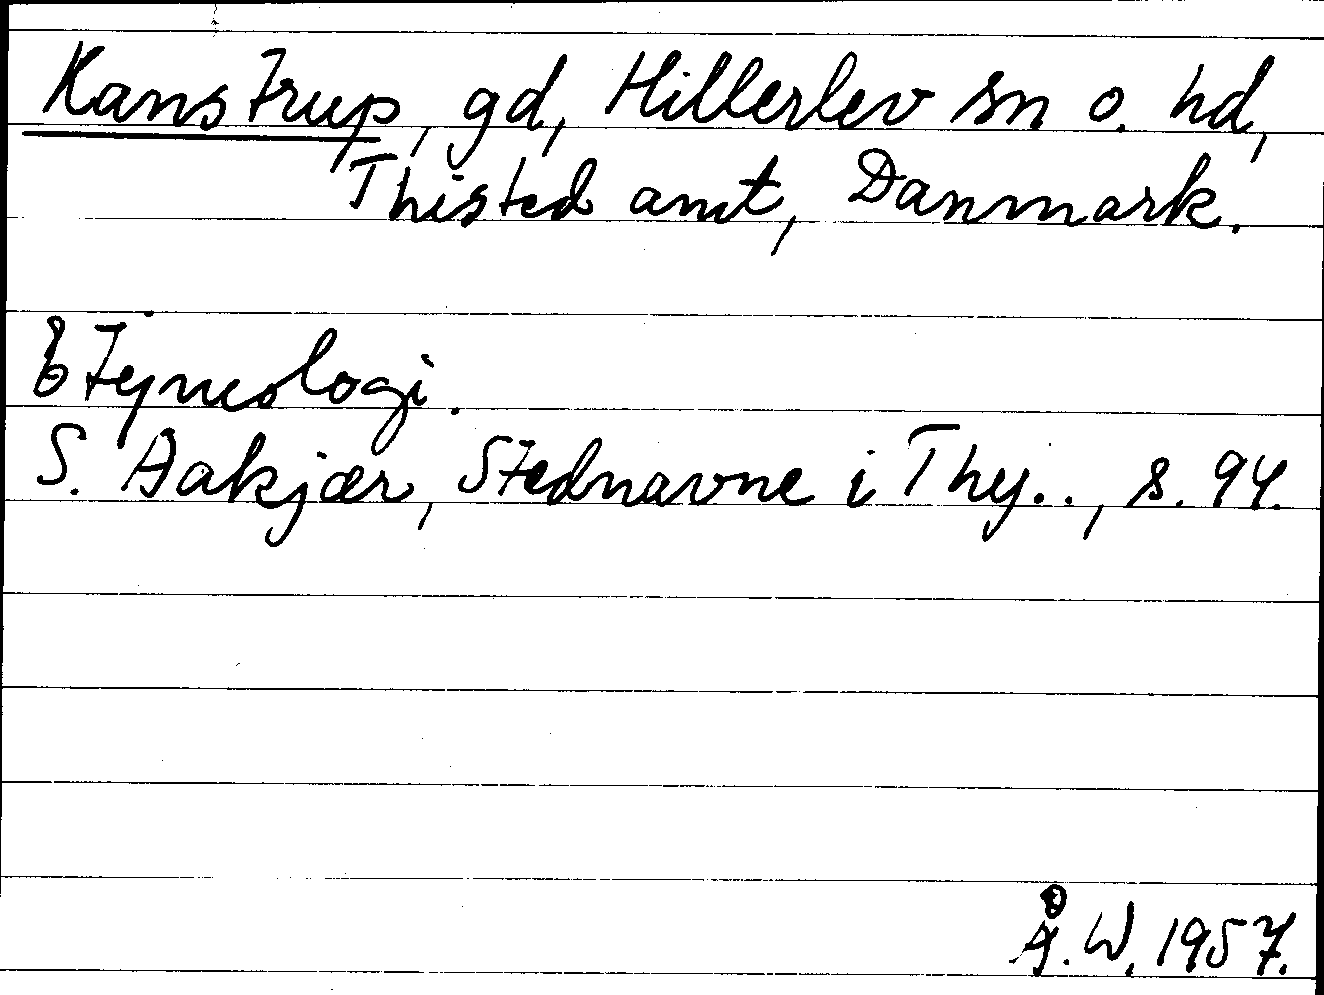 Kanstrup, gd, Hillerlev sn o. hd,
Thisted amt, Danmark.
Etymologi.
S. Aakjær, Stednavne i Thy.., s. 94.
Å.W. 1957.